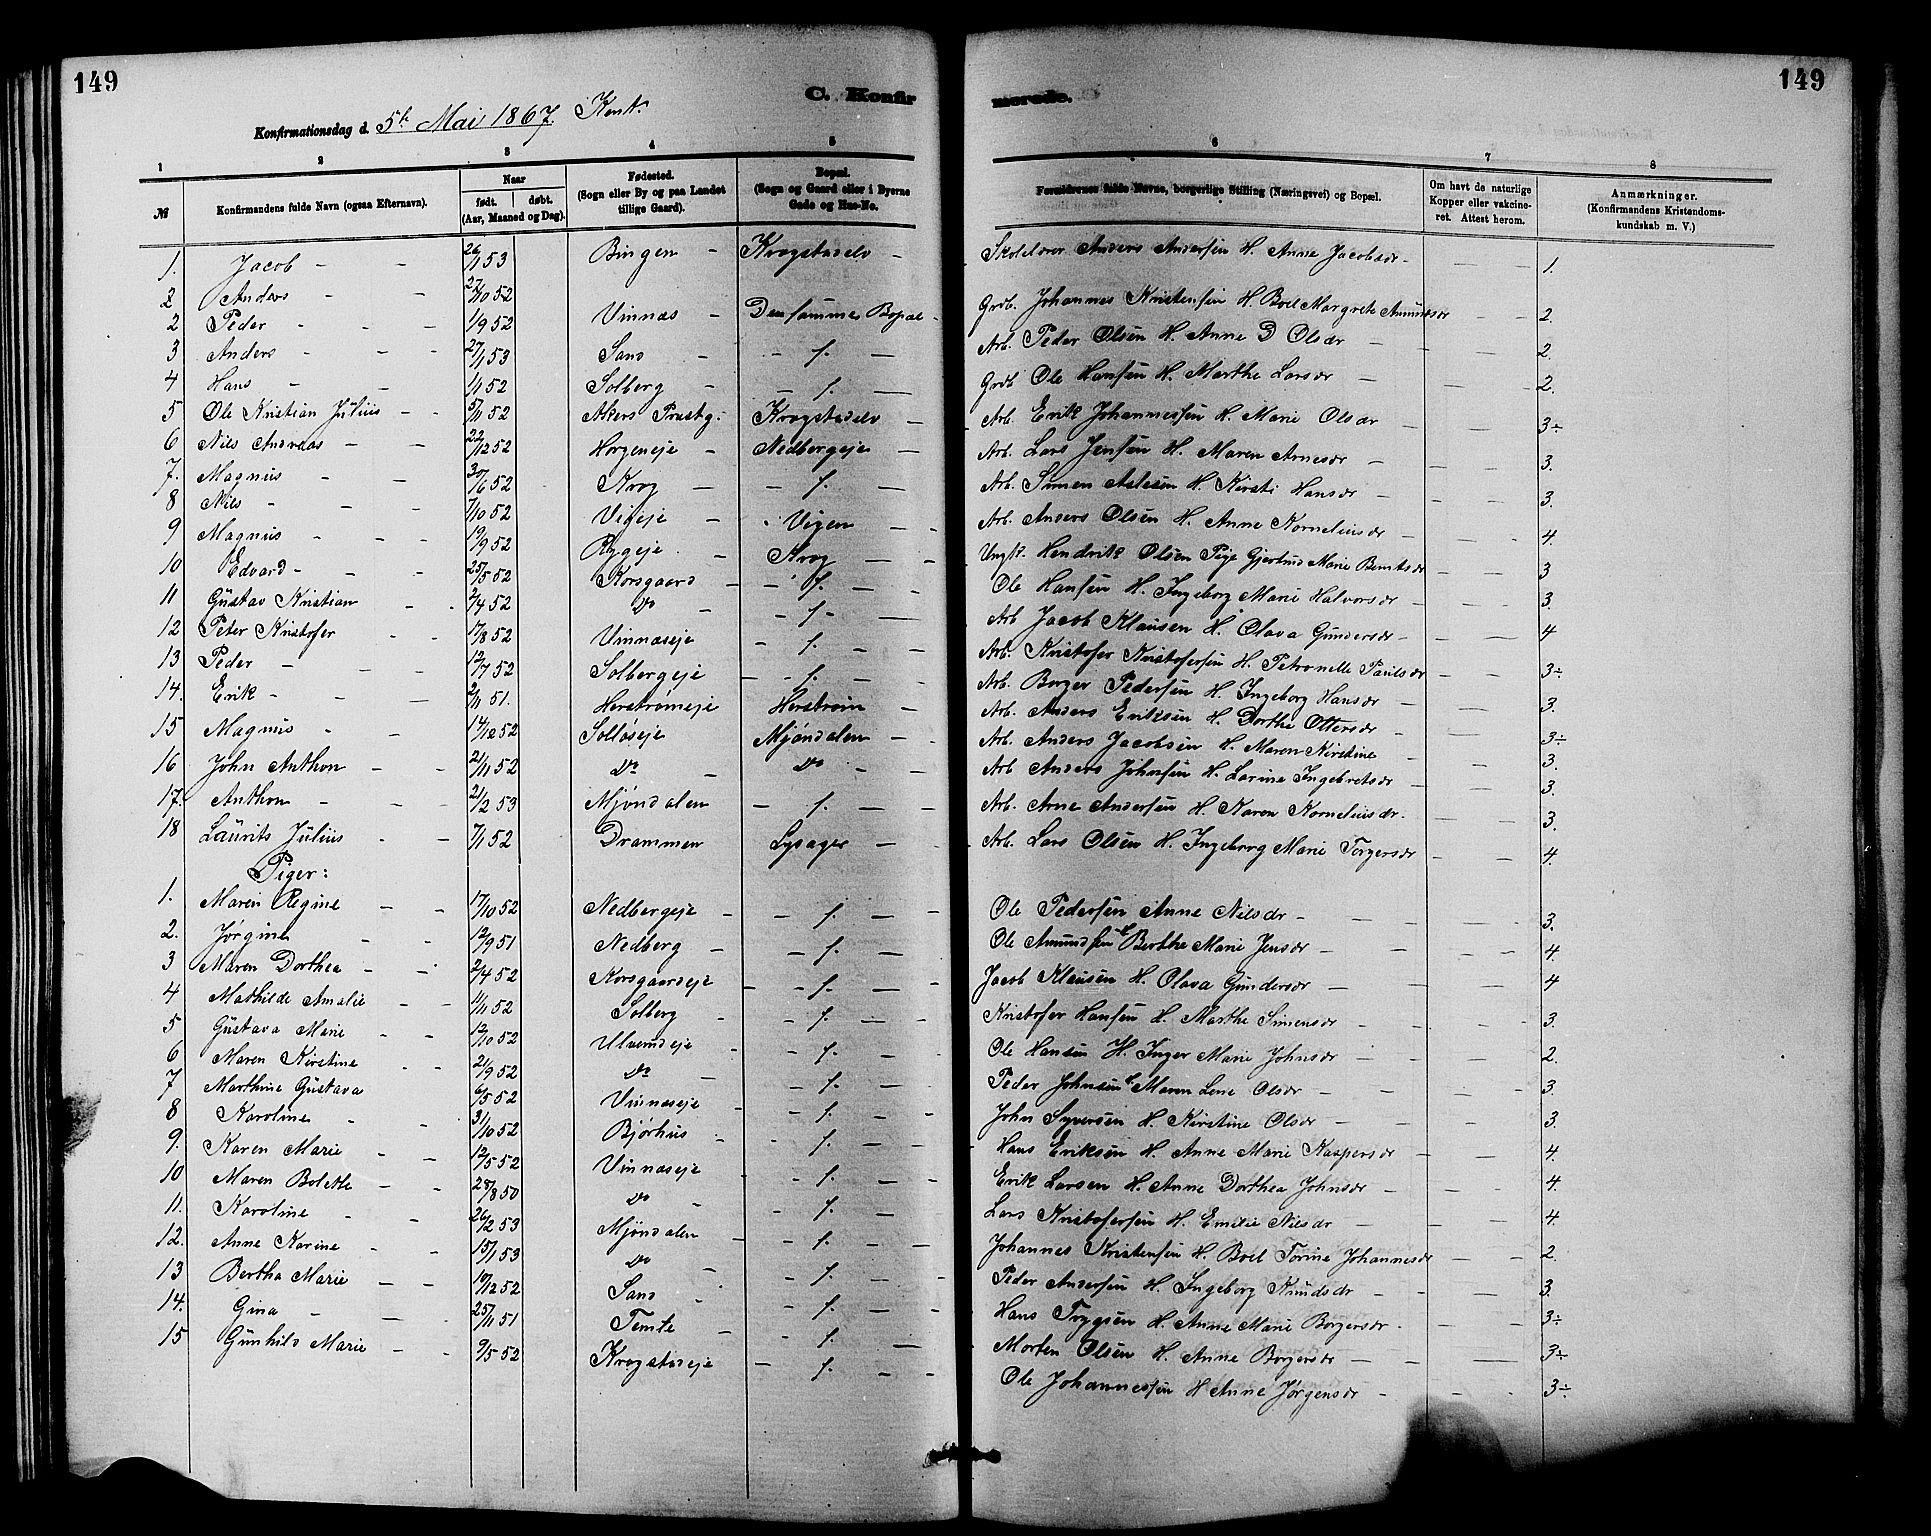 149
149
C. Konfir
merede.
Konfirmationsdag d. 5te Mai 1867.
1 2 3 4 5 6 7 8
№ Konfirmandens fulde Navn (ogsaa Efternavn). Naar født. døbt. (Aar, Maaned og Dag). Fødested. (Sogn eller By og paa Landet tillige Gaard). Bopæl. (Sogn og Gaard eller i Byerne Gade og Hus-No. Forældrenes fulde Navne, borgerlige Stilling (Næringsvei) og Bopæl. Om havt de naturlige Kopper eller vakcineret. Attest herom. Anmærkninger. (Konfirmandens Kristendomskundskab m. V.)
1. Jacob - - 26/1 53 Bingen - Krogstadelv Skolelærer Anders Andersen H. Anne Jacobsdr - 1.
2 Anders - - 27/10 52 Vinnæs - Den samme Bopæl - Grdb. Johannes Kristensen H. Boel Margrete Amundsdr 2.
2 Peder - - 1/9 52 Sand - - /. - Arb. Peder Olsen H. Anne D Olsdr - 2.
3 Anders - - 27/1 53 Solberg - - /. - Grdb Ole Hansen H. Marthe Larsdr - 2.
4 Hans - - 1/1 52 Akers Præstg: Krogstadelv - Arb. Erik Johannessen H. Marie Olsdr - 3÷
5 Ole Kristian Julius - - 5/11 52 Horgeneje - Nedbergeje - Arb. Lars Jensen H. Maren Arnesdr - 3.
6 Nils Andreas - - 22/12 52 Krog - - /. - Arb. Simen Aslesen H. Kirsti Hansdr - 3.
7. Magnus - - 30/6 52 Vigeje - Vigen - Arb. Anders Olsen H. Anne Korneliusdr - 4.
8 Nils - - 7/10 52 Rygeje - Krog - Ungk. Hendrik Olsen Pige Gjertrud Marie Berntsdr - 3
9 Magnus - - 19/9 52 Korsgaard - - /. - Ole Hansen H. Ingeborg Marie Halvorsdr - 3.
10 Edvard - - 25/5 52 Do - - /. - Arb Jacob Klausen H. Olava Gundersdr - 4
11 Gustav Kristian - - 2/4 52 Vinnæseje - /. - Arb. Kristofer Kristofersen H. Petronelle Paulsdr - 3÷
12 Peter Kristofer - - 17/8 52 Solbergeje - - /. - Arb. Borger Pedersen H. Ingeborg Hansdr - 3.
13 Peder - - 12/7 52 Herstrømeje Herstrøm - Arb. Anders Eriksen H. Dorthe Ottersdr - 3÷
14. Erik - - 2/11 51. Solløseje - Mjøndalen - Arb. Anders Jacobsen H. Maren Kirstine - 3.
15 Magnus - - 14/12 52 Do - Do - Arb Anders Johnsen H. Larine Ingebretsdr - 3.
16 John Anthon - - 21/11 52 Mjøndalen - /. - Arb. Arne Andersen H. Karen Kornelinsdr. 3.
17. Anthon - - 21/2 53 Drammen Lysager - Arb. Lars Olsen H. Ingeborg Marie Torgersdr - 4.
18 Laurits Julius - - 7/11 52
Piger:
1. Maren Regine - - 17/10 52 Nedbergeje - - /. - Ole Pedersen Anne Nilsdr - 3.
2. Jørgine - 12/9 51 Nedberg - - /. - Ole Amundsen Berthe Marie Jensdr - 4.
3 Maren Dorthea - - 2/4 52 Korsgaardeje - /. - Jacob Klausen H. Olava Gundersdr - 4
4 Mathilde Amalie - - 1/11 52 Solberg - - /. - Kristofer Hansen H. Marthe Simensdr - 3.
5 Gustava Marie - - 12/10 52 Ulverudeje - /. - Ole Hansen H. Inger Marie Johnsdr - 2.
6 Maren Kirstine - - 21/9 52 Do - - /. - Peder Johnsen Maren Lene Olsdr - 3.
7 Marthine Gustava 6/5 52 Vinnæseje - - /. - John Syversen H. Kirstine Olsdr - 3.
8 Karoline - - 31/10 52 Bjørhus - - /. - Hans Eriksen H. Anne Marie Kaspersdr - 4.
9. Karen Marie - - 12/5 52 Vinnæseje - /. - Erik Larsen H. Anne Dorthea Johnsdr - 4.
10 Maren Bolette - - 28/8 50 Do - - /. - Lars Kristofersen H. Emilie Nilsdr - 4.
11. Karoline - - 26/2 53 Mjøndalen - - /. - Johannes Kristensen H. Boel Torine Johannesdr - 2.
12. Anne Karine - - 15/1 53 Do - - /. - Peder Andersen H. Ingeborg Knudsdr - 3.
13 Bertha Marie - - 19/12 52 Sand - - /. - Hans Trygsen H. Anne Marie Borgersdr - 3÷
14. Gina - - 25/11 51 Temte - - /. - Morten Olsen H. Anne Borgersdr - 3÷
15 Gunhild Marie - - 9/5 52 Krogstadeje - /. - Ole Johannessen H Anne Jørgensdr - 3÷.